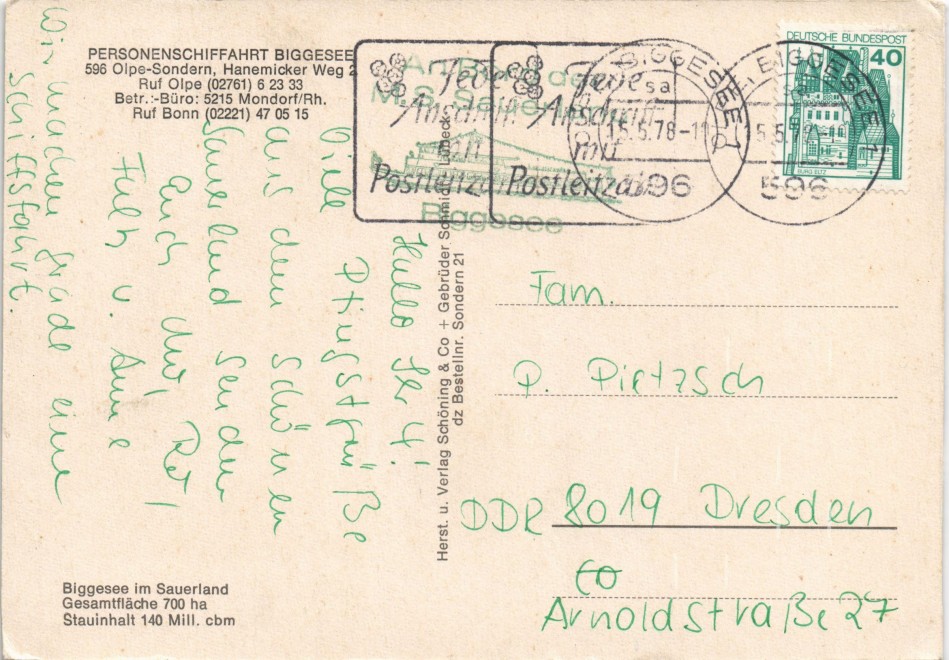 PERSONENSCHIFFAHRT BIGGESEE
596 Olpe-Sondern, Hanemicker Weg 2
Ruf Olpe (02761) 6 23 33
Betr.:-Büro: 5215 Mondorf/Rh.
Ruf Bonn (02221) 47 05 15
An Bord des
M.S. Sauerland
Biggesee
Jede
Anschrift
mit
Postleitzahl
Jede
Anschrift
mit
Postleitzahl
BIGGESEE 1
sa
15.5.78-11
596
BIGGESEE 1
596
DEUTSCHE BUNDESPOST
40
BURG ELTZ
Hallo Ihr 4!
Viele Pfingstgrüße
aus dem schönen
Sauerland senden
Euch Uwe,
Falk u. Anne
Wir machen grade eine
Schiffsfahrt.
Herst. u. Verlag Schöning & Co + Gebrüder Schmidt, Lübeck
dz Bestellnr. Sondern 21
Fam.
P. Pietzsch
DDR 8019 Dresden
Arnoldstraße 27
Biggesee im Sauerland
Gesamtfläche 700 ha
Stauinhalt 140 Mill. cbm